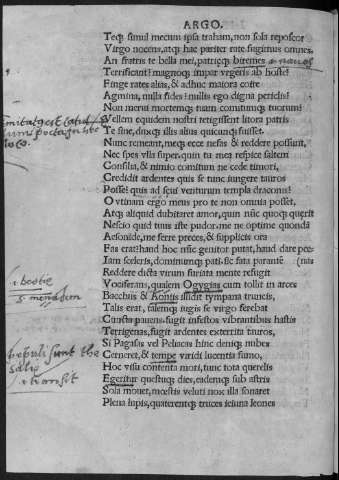 ARGO.
Teq; simul mecum ipsa traham, non sola reposcor
Virgo nocens, atq; hac pariter rate fugimus omnes.
An fratris te bella mei, patriæq; biremes
Terrificant? magnoq; impar vrgeris ab hoste?
Finge rates alias, & adhuc maiora coire
Agmina, nulla fides? nullis ego digna periclis?
Non merui mortemq; tuam comitumq; tuorum?
Vellem equidem nostri tetigissent litora patris
Te sine, duxq; illis alius quicunq; fuisset.
Nunc remeant, meq; ecce nefas & reddere possunt,
Nec spes vlla super. quin tu mea respice saltem
Consilia, & nimio comitum ne cede timori,
Credidit ardentes quis te tunc iungere tauros
Posse? quis ad sæui venturum templa draconis?
O vtinam ergo meus pro te non omnia posset,
Atq; aliquid dubitaret amor, quin nūc quoq; quærit
Nescio quid tuus iste pudor. me ne optime quondā
Aesonide, me ferre preces, & supplicis ora
Fas erat? haud hoc nūc genitor putat, haud dare pœ-
Iam sceleris, dominumq; pati. sic fata parantē (nas
Reddere dicta virum furiata mente refugit
Vociferans, qualem Ogygias cum tollit in arces
Bacchus & Aoniis illidit tympana truncis,
Talis erat, talemq; iugis se virgo ferebat
Cuncta pauens. fugit infestos vibrantibus hastis
Terrigenas, fugit ardentes exterrita tauros,
Si Pagasas vel Peliacas hinc deniq; nubes
Cerneret, & tempe viridi lucentia fumo,
Hoc visu contenta mori, tunc tota querelis
Egeritur questuq; dies, eademq; sub astris
Sola mouet, mœstis veluti nox illa sonaret
Plena lupis, quaterentq; truces ieiuna leones